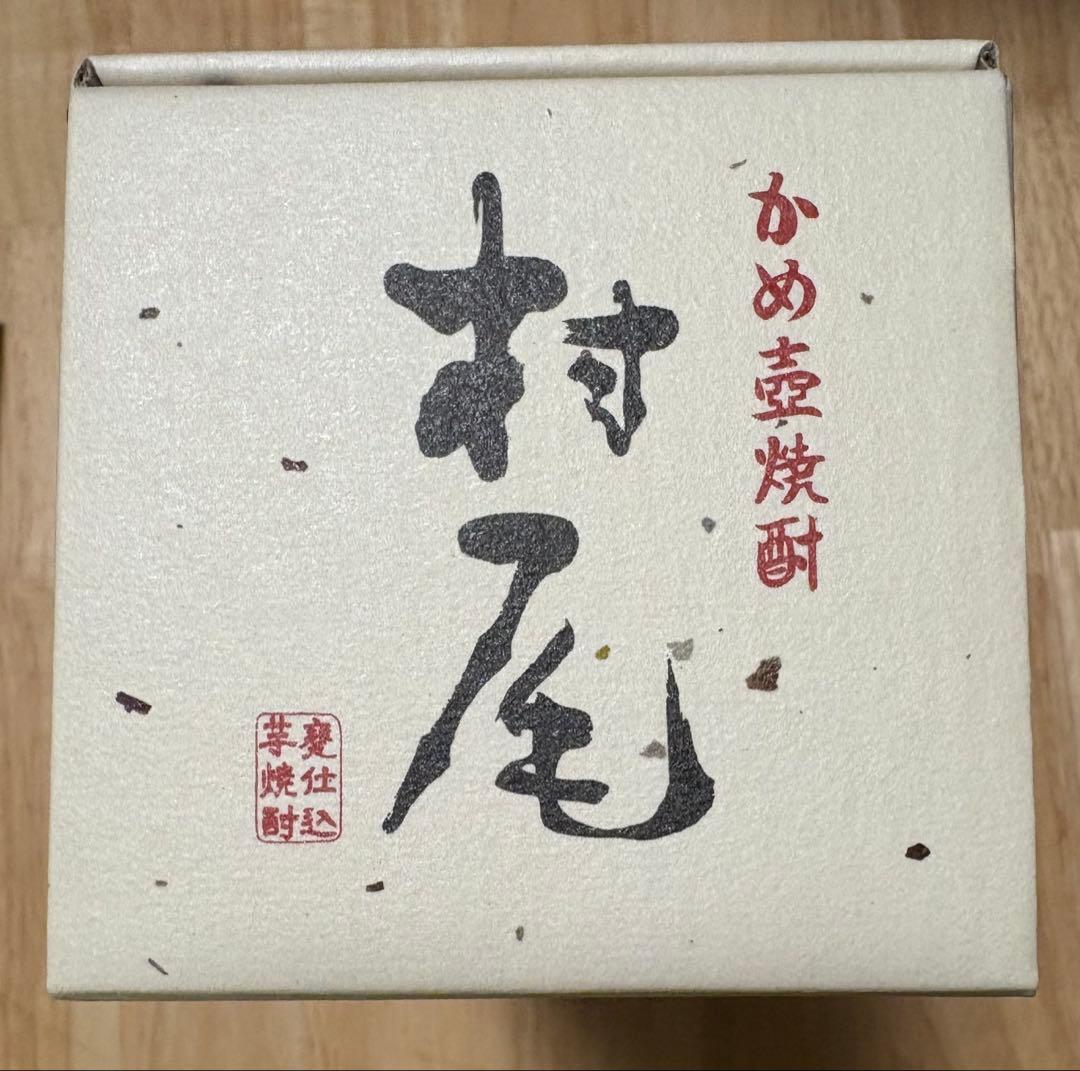 かめ壺焼酎
村尾
甕仕込
芋焼酎